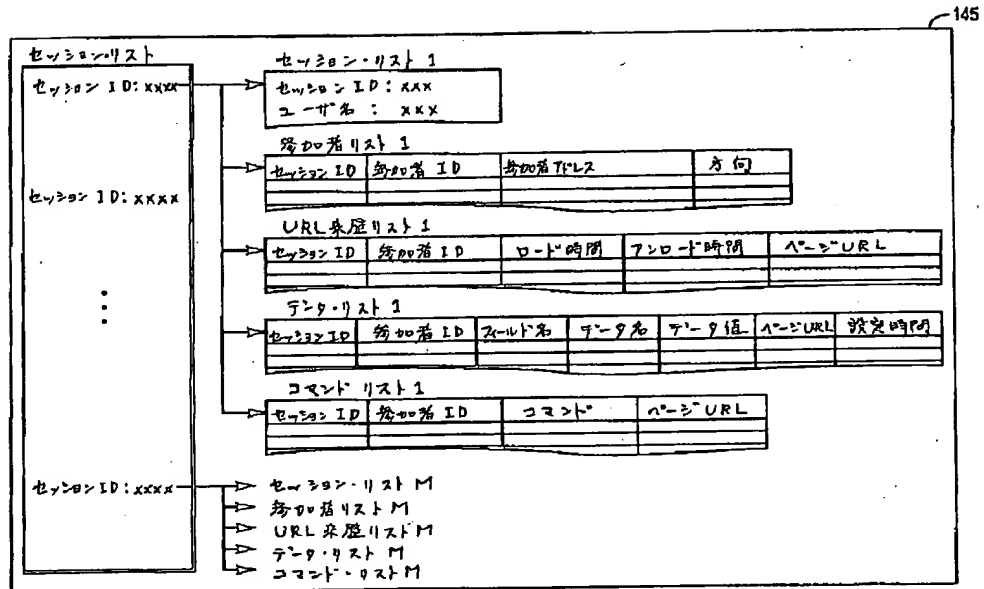 145
セッション・リスト
セッション ID: xxxx
セッション ID: xxxx
セッション ID: xxxx
セッション・リスト 1
セッション ID: xxx
ユーザ名 : xxx
参加者リスト 1
セッション ID 参加者 ID 参加者アドレス 方向
URL来歴リスト 1
セッション ID 参加者 ID ロード時間 アンロード時間 ページURL
データ・リスト 1
セッション ID 参加者 ID フィールド名 データ名 データ値 ページURL 設定時間
コマンド リスト 1
セッション ID 参加者 ID コマンド ページURL
セッション・リスト M
参加者リスト M
URL 来歴リスト M
データ・リスト M
コマンド・リスト M